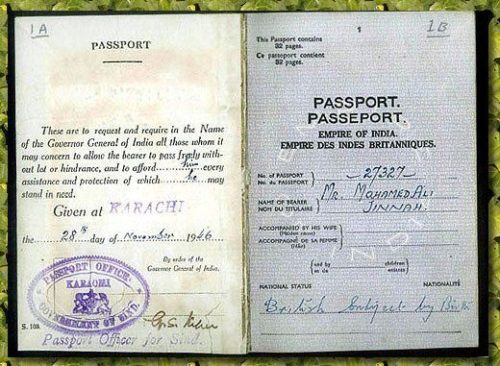 1A
PASSPORT
These are to request and require in the Name
of the Governor General of India all those whom it
may concern to allow the bearer to pass freely with-
out let or hindrance, and to afford him every
assistance and protection of which he may
stand in need.
Given at KARACHI
the 28th day of November 1946
By order of the
Governor General of India.
PASSPORT OFFICE
KARACHI
GOVERNMENT OF SIND.
S. 108.
Passport Officer for Sind.
1
1B
This Passport contains
32 pages.
Ce passeport contient
32 pages.
PASSPORT.
PASSEPORT.
EMPIRE OF INDIA.
EMPIRE DES INDES BRITANNIQUES.
No. of PASSPORT
No. du PASSEPORT
27327
Mr. MOHAMED ALI
NAME OF BEARER
NOM DU TITULAIRE
JINNAH.
ACCOMPANIED BY HIS WIFE
(Maiden name)
ACCOMPAGNÉ DE SA FEMME
(Née)
and by
et de
children
enfants
NATIONAL STATUS
NATIONALITÉ
British Subject by Birth